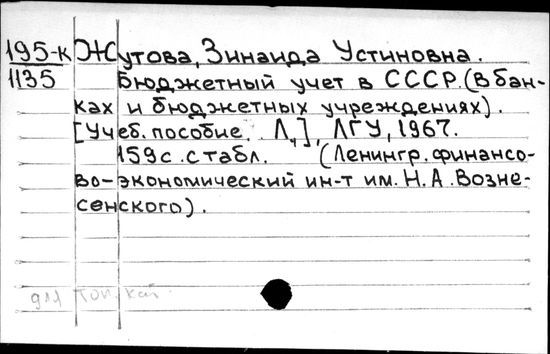 195-к Жутова, Зинаида Устиновна.
1135 Бюджетный учет в СССР. (В бан-
ках и бюджетных учреждениях).
[Учеб. пособие. Л.], ЛГУ, 1967.
159с. с табл. (Ленингр. финансо-
во-экономический ин-т им. Н.А. Возне-
сенского).